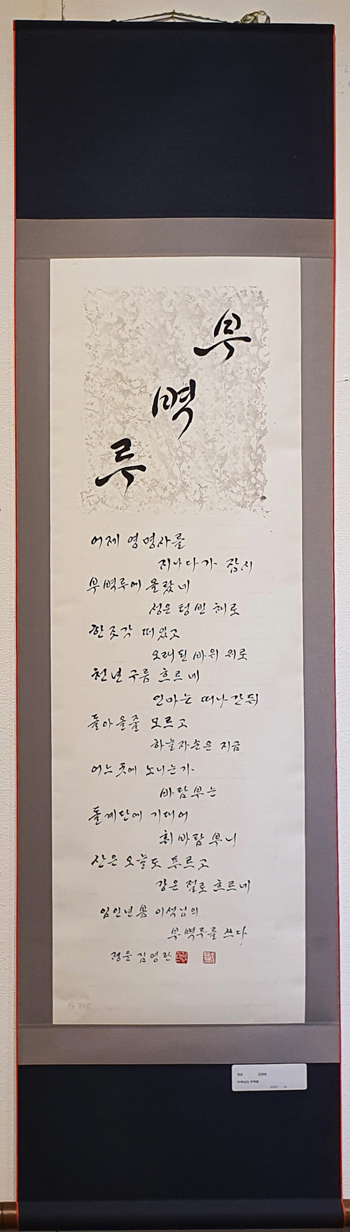 부
벽
루
어제 영명사를
지나다가 잠시
부벽루에 올랐네
성은 텅 빈 채로
한 조각 떠 있고
오래된 바위 위로
천년 구름 흐르네
인마는 떠나간 뒤
돌아올 줄 모르고
하늘자손은 지금
어느 곳에 노니는가
바람 부는
돌계단에 기대어
휘바람 부니
산은 오늘도 푸르고
강은 절로 흐르네
임인년 봄 이색님의
부벽루를 쓰다
김영란